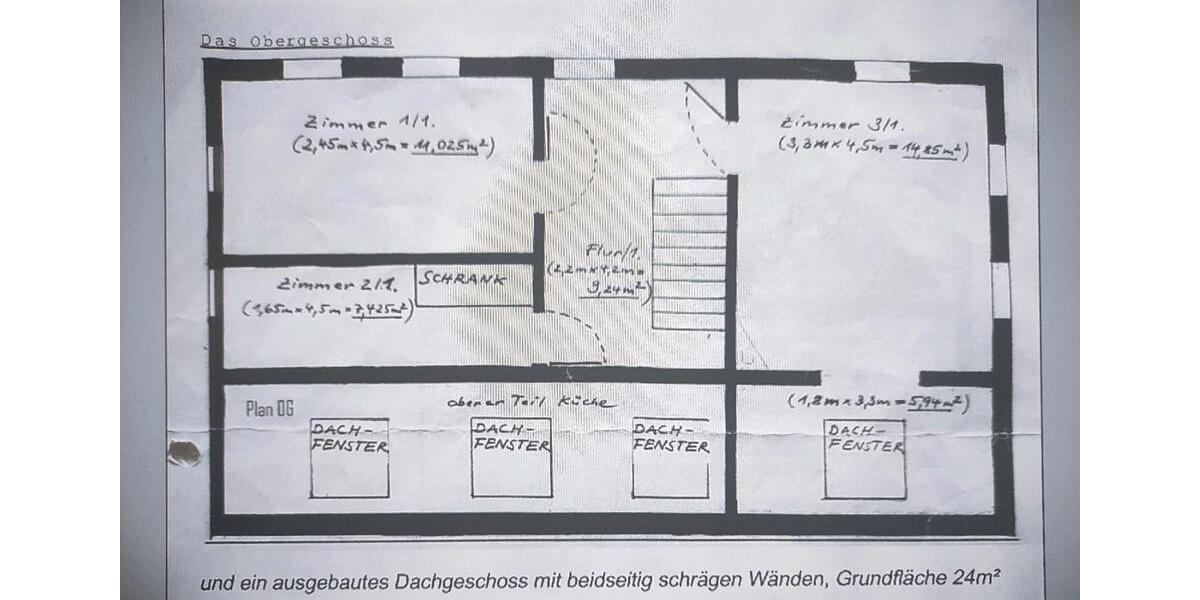 Das Obergeschoss
Zimmer 1/1.
(2,45m x 4,5m = 11,025m²)
Zimmer 3/1.
(3,3m x 4,5m = 14,85m²)
Flur/1.
(2,2m x 4,2m =
9,24m²)
Zimmer 2/1.
(1,65m x 4,5m = 7,425m²)
SCHRANK
Plan OG
oberer Teil Küche
(1,8m x 3,3m = 5,94m²)
DACH-
FENSTER
DACH-
FENSTER
DACH-
FENSTER
DACH-
FENSTER
und ein ausgebautes Dachgeschoss mit beidseitig schrägen Wänden, Grundfläche 24m²